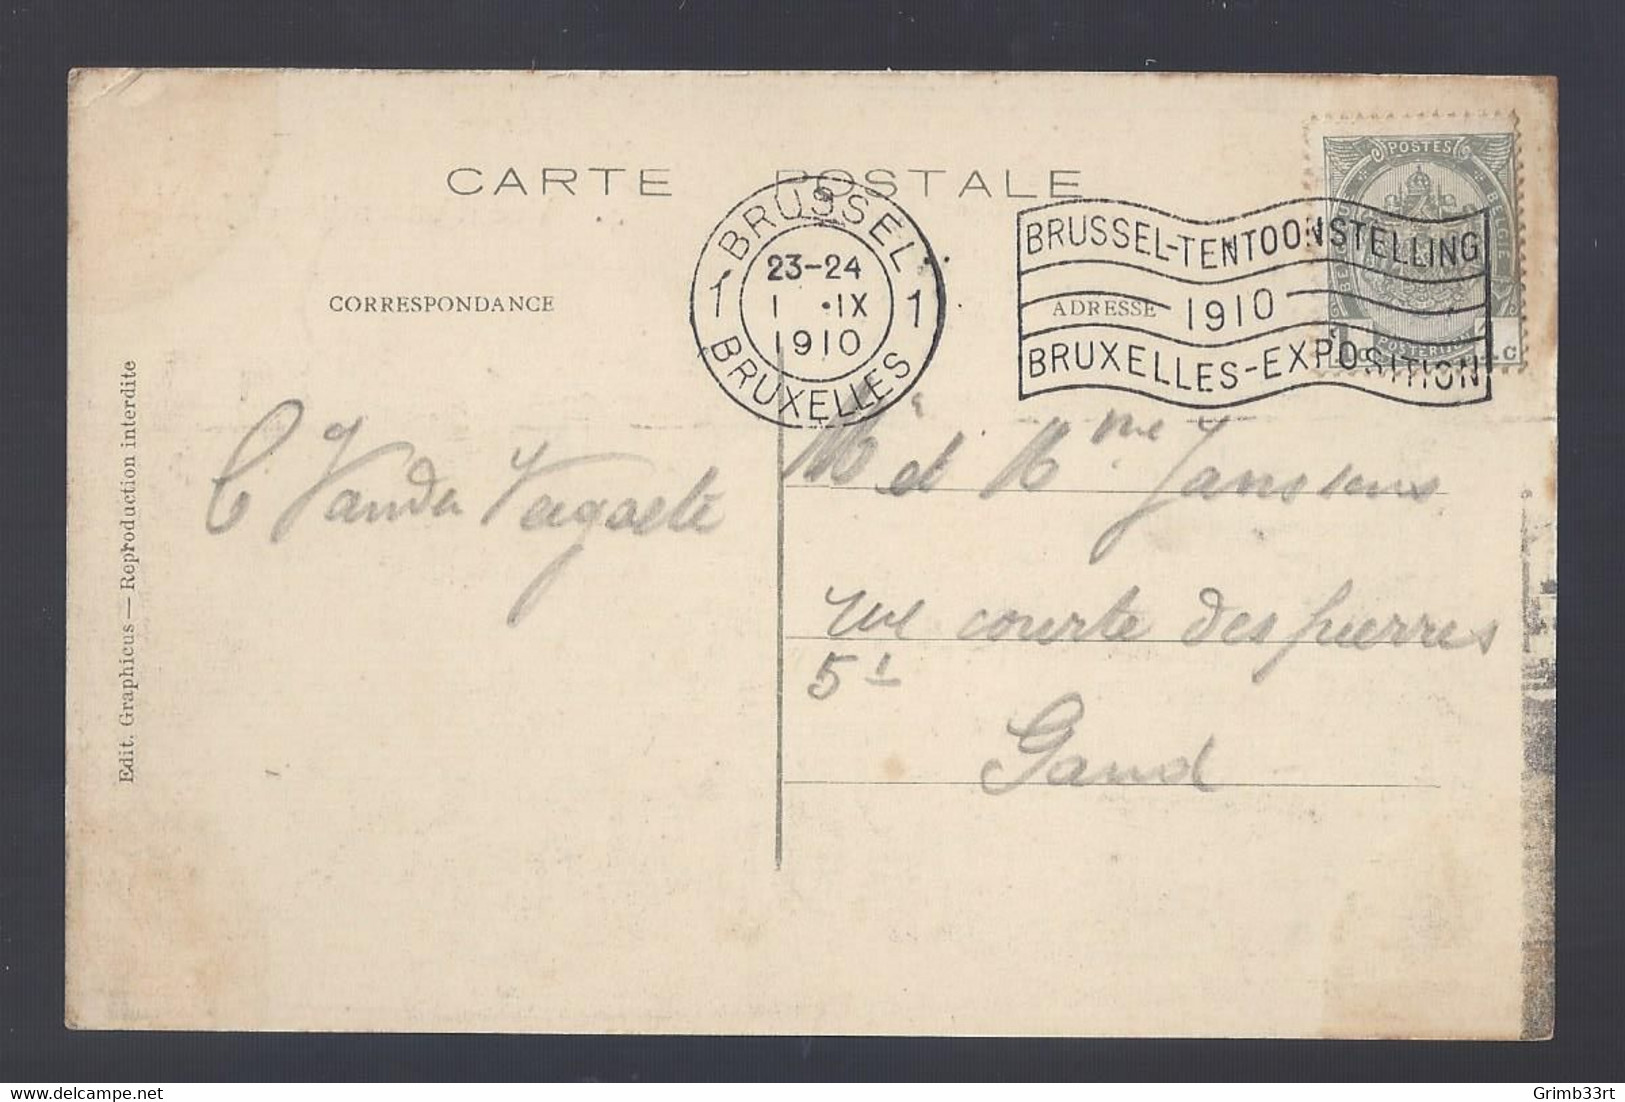 CARTE POSTALE
POSTES
BELGIË
BRUSSEL
1 23-24 1
1 .IX
1910
BRUXELLES
BRUSSEL-TENTOONSTELLING
1910
BRUXELLES-EXPOSITION
CORRESPONDANCE
ADRESSE
Edit. Graphicus — Reproduction interdite
C Vander
Mr et Mme Janssens
rue courte des pierres
51
Gand
delcampe.net
Grimb33rt